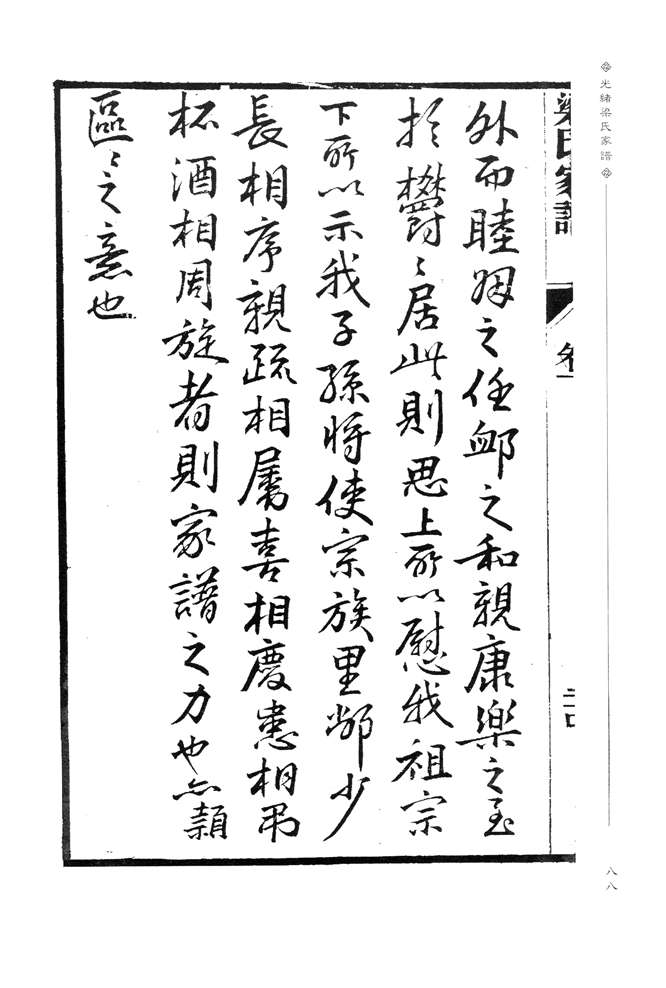 光緒梁氏家譜
八八
梁氏家譜
卷一
外而睦婣之任卹之和親康樂之至
於欝〻居此則思上所以慰我祖宗
下所以示我子孫將使宗族里鄰少
長相序親疏相屬喜相慶患相弔
杯酒相周旋者則家譜之力也亦頴
區〻之意也